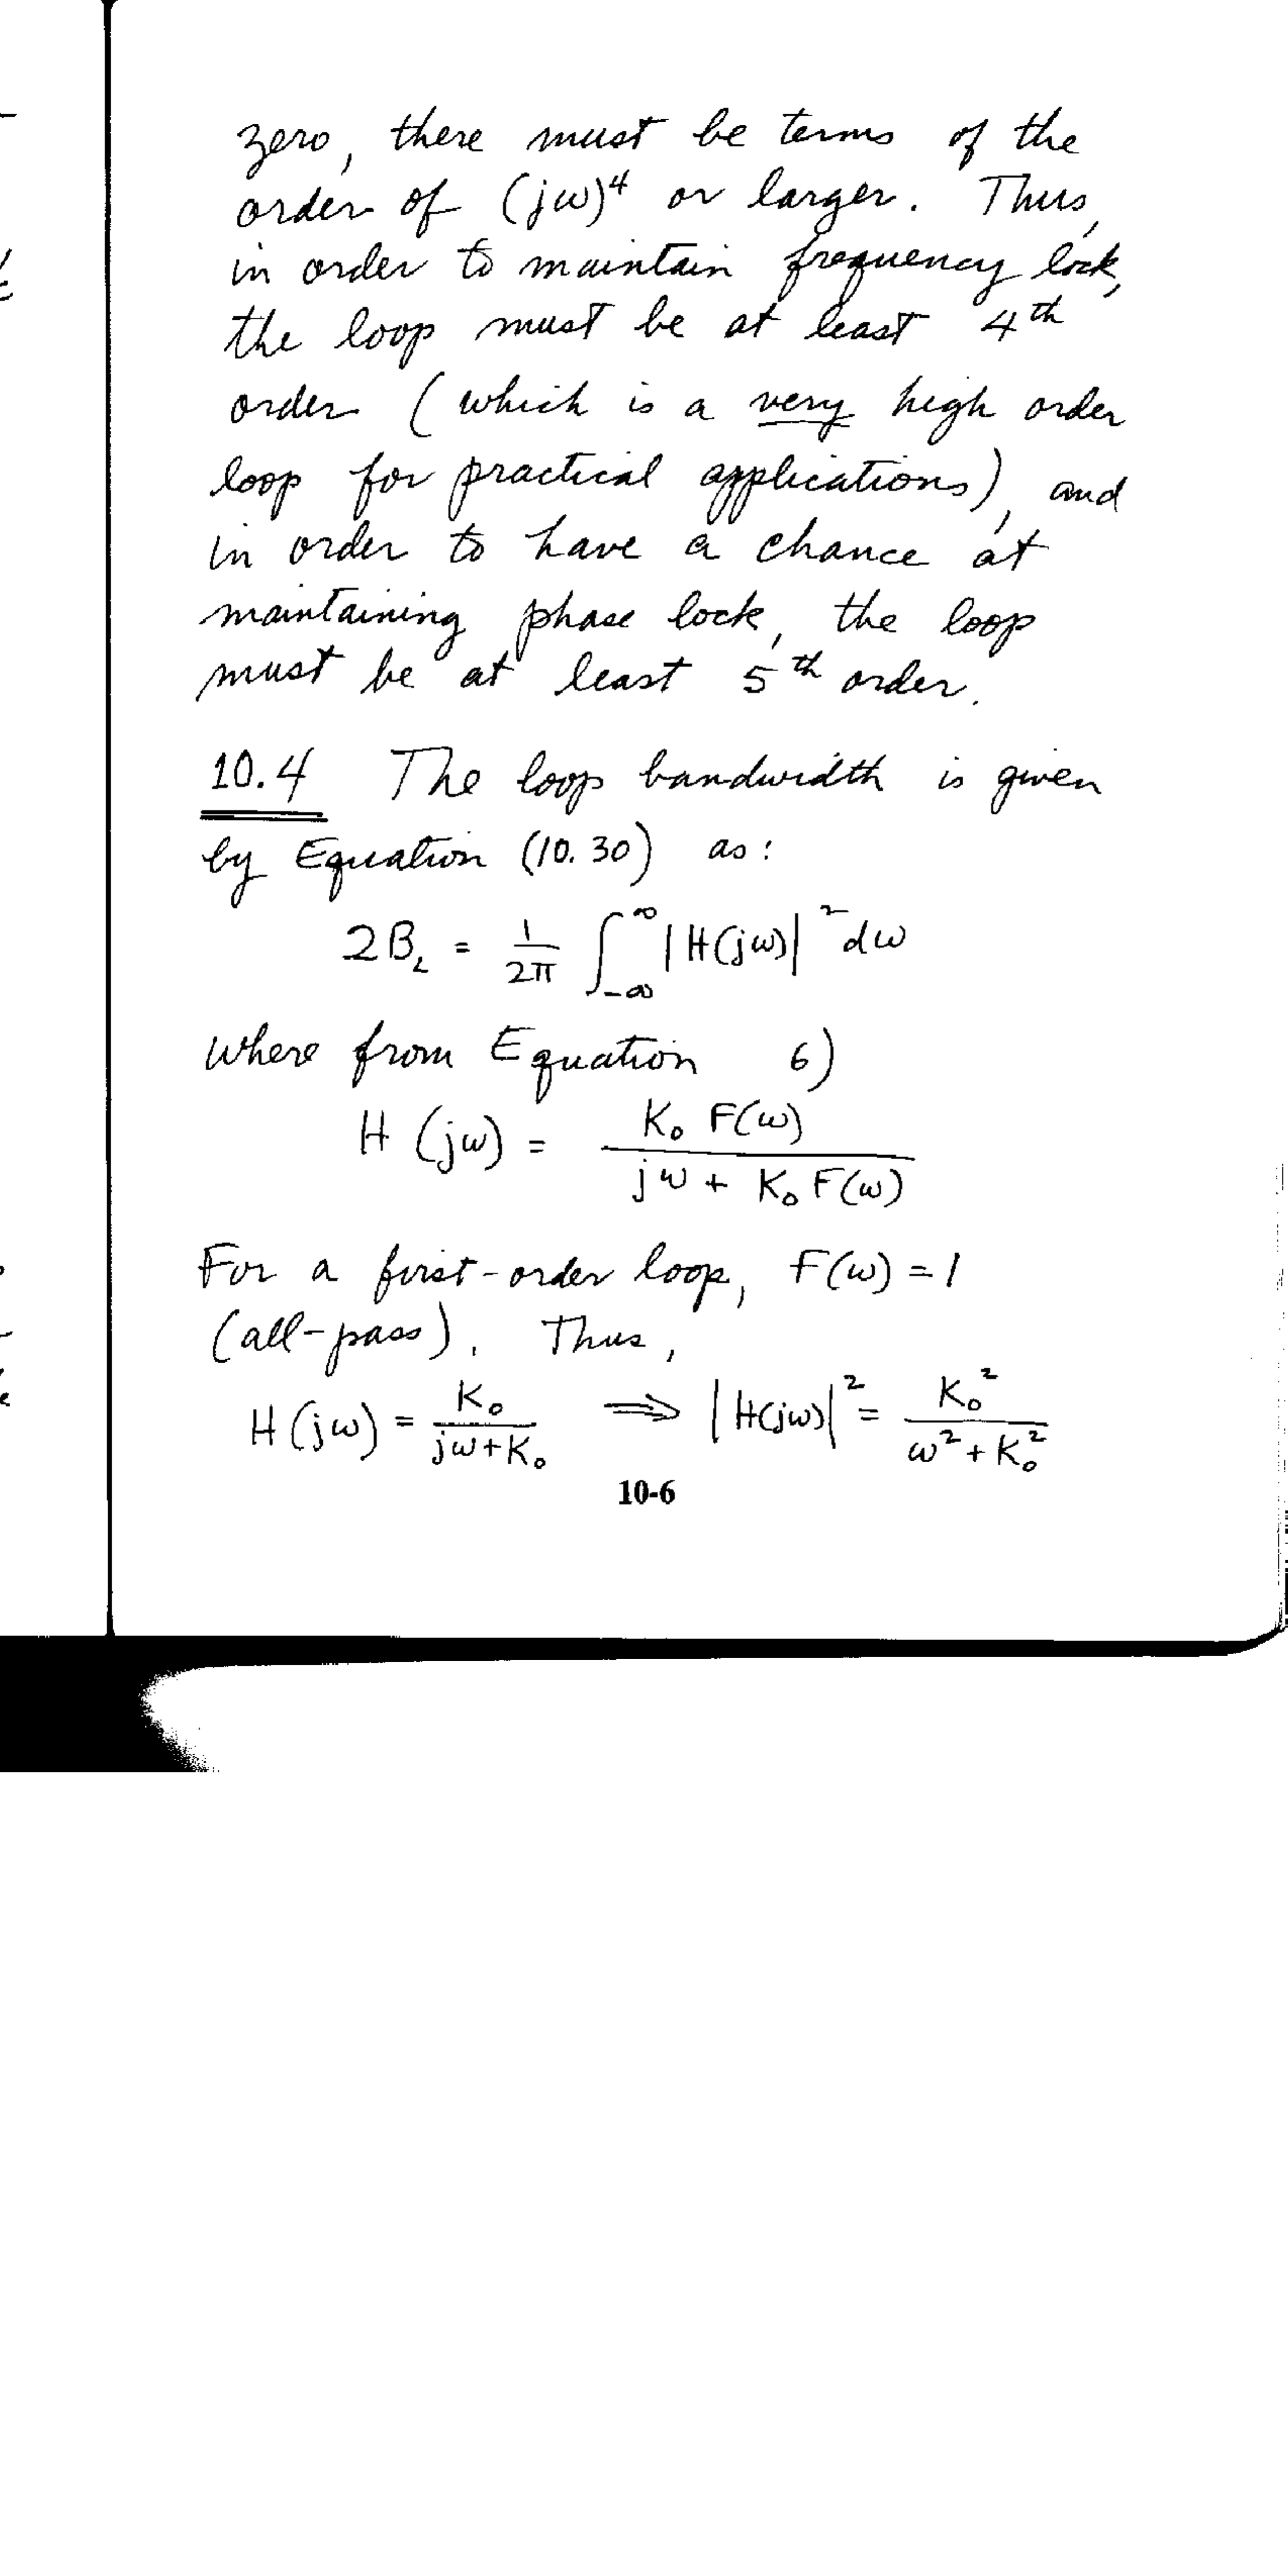 zero, there must be terms of the
order of (jω)⁴ or larger. Thus,
in order to maintain frequency lock,
the loop must be at least 4th
order (which is a very high order
loop for practical applications), and
in order to have a chance at
maintaining phase lock, the loop
must be at least 5th order.
10.4 The loop bandwidth is given
by Equation (10.30) as:
2B_L = 1/2π ∫_{-∞}^{∞} |H(jω)|² dω
where from Equation 6)
H(jω) = K₀ F(ω) / jω + K₀ F(ω)
For a first-order loop, F(ω) = 1
(all-pass). Thus,
H(jω) = K₀ / jω+K₀ ⇒ |H(jω)|² = K₀² / ω² + K₀²
10-6